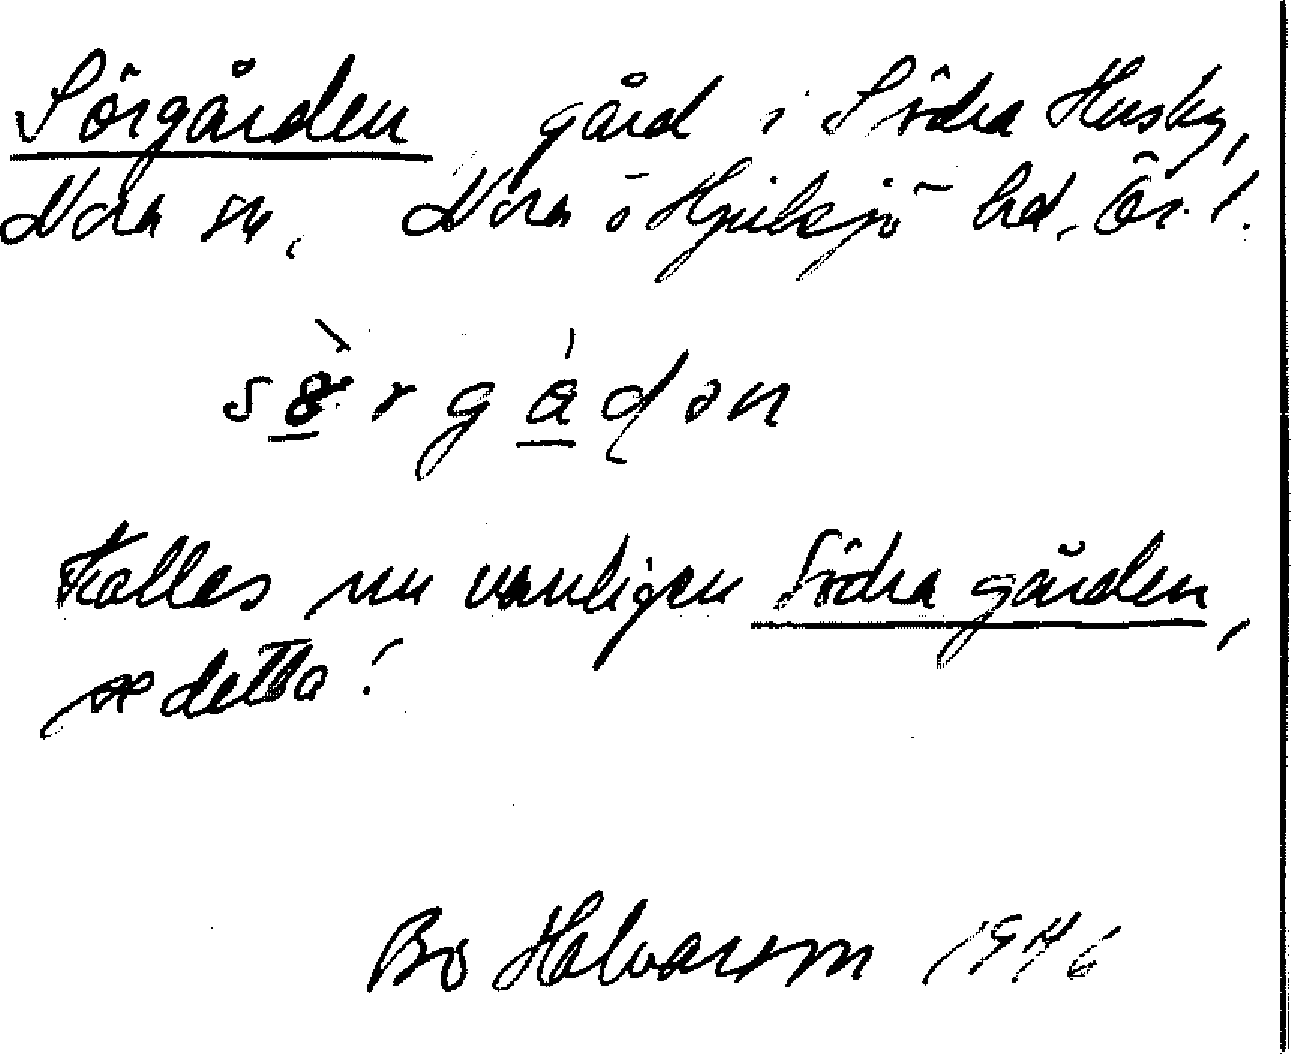 Sörgården gård i Södra Husby,
Nora sn, Nora o Hjulsjö hd, Ör. l.
sö̀rgá̱ɖən
Kallas nu vanligen Södra gården,
se detta!
Bo Halvarson 1946